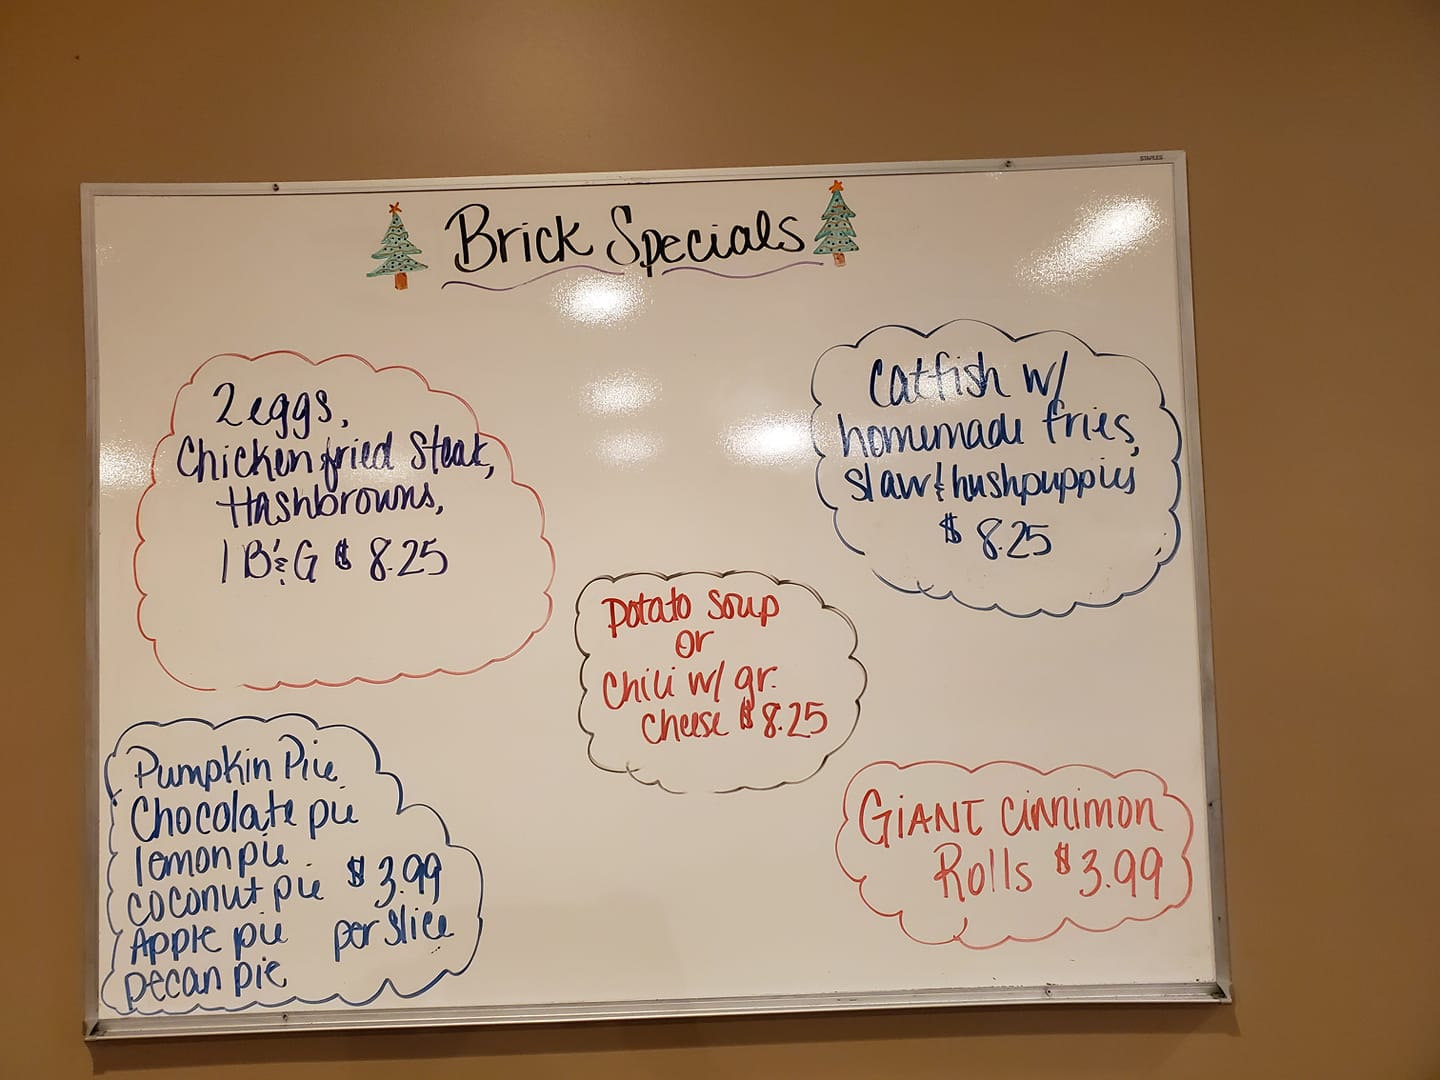 STAPLES
Brick Specials
2 eggs,
Chicken fried Steak,
Hashbrowns,
1 B & G $8.25
Catfish w/
homemade fries,
slaw & hushpuppies
$8.25
Potato Soup
or
Chili w/ gr.
Cheese $8.25
Pumpkin Pie
Chocolate pie
lemon pie
coconut pie
Apple pie
pecan pie
$3.99
per slice
GIANT cinnimon
Rolls $3.99